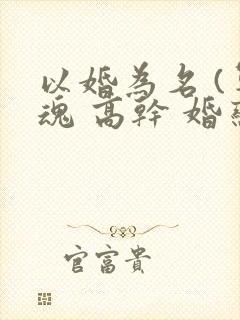 以婚為名(
魂 高幹 婚
官富貴